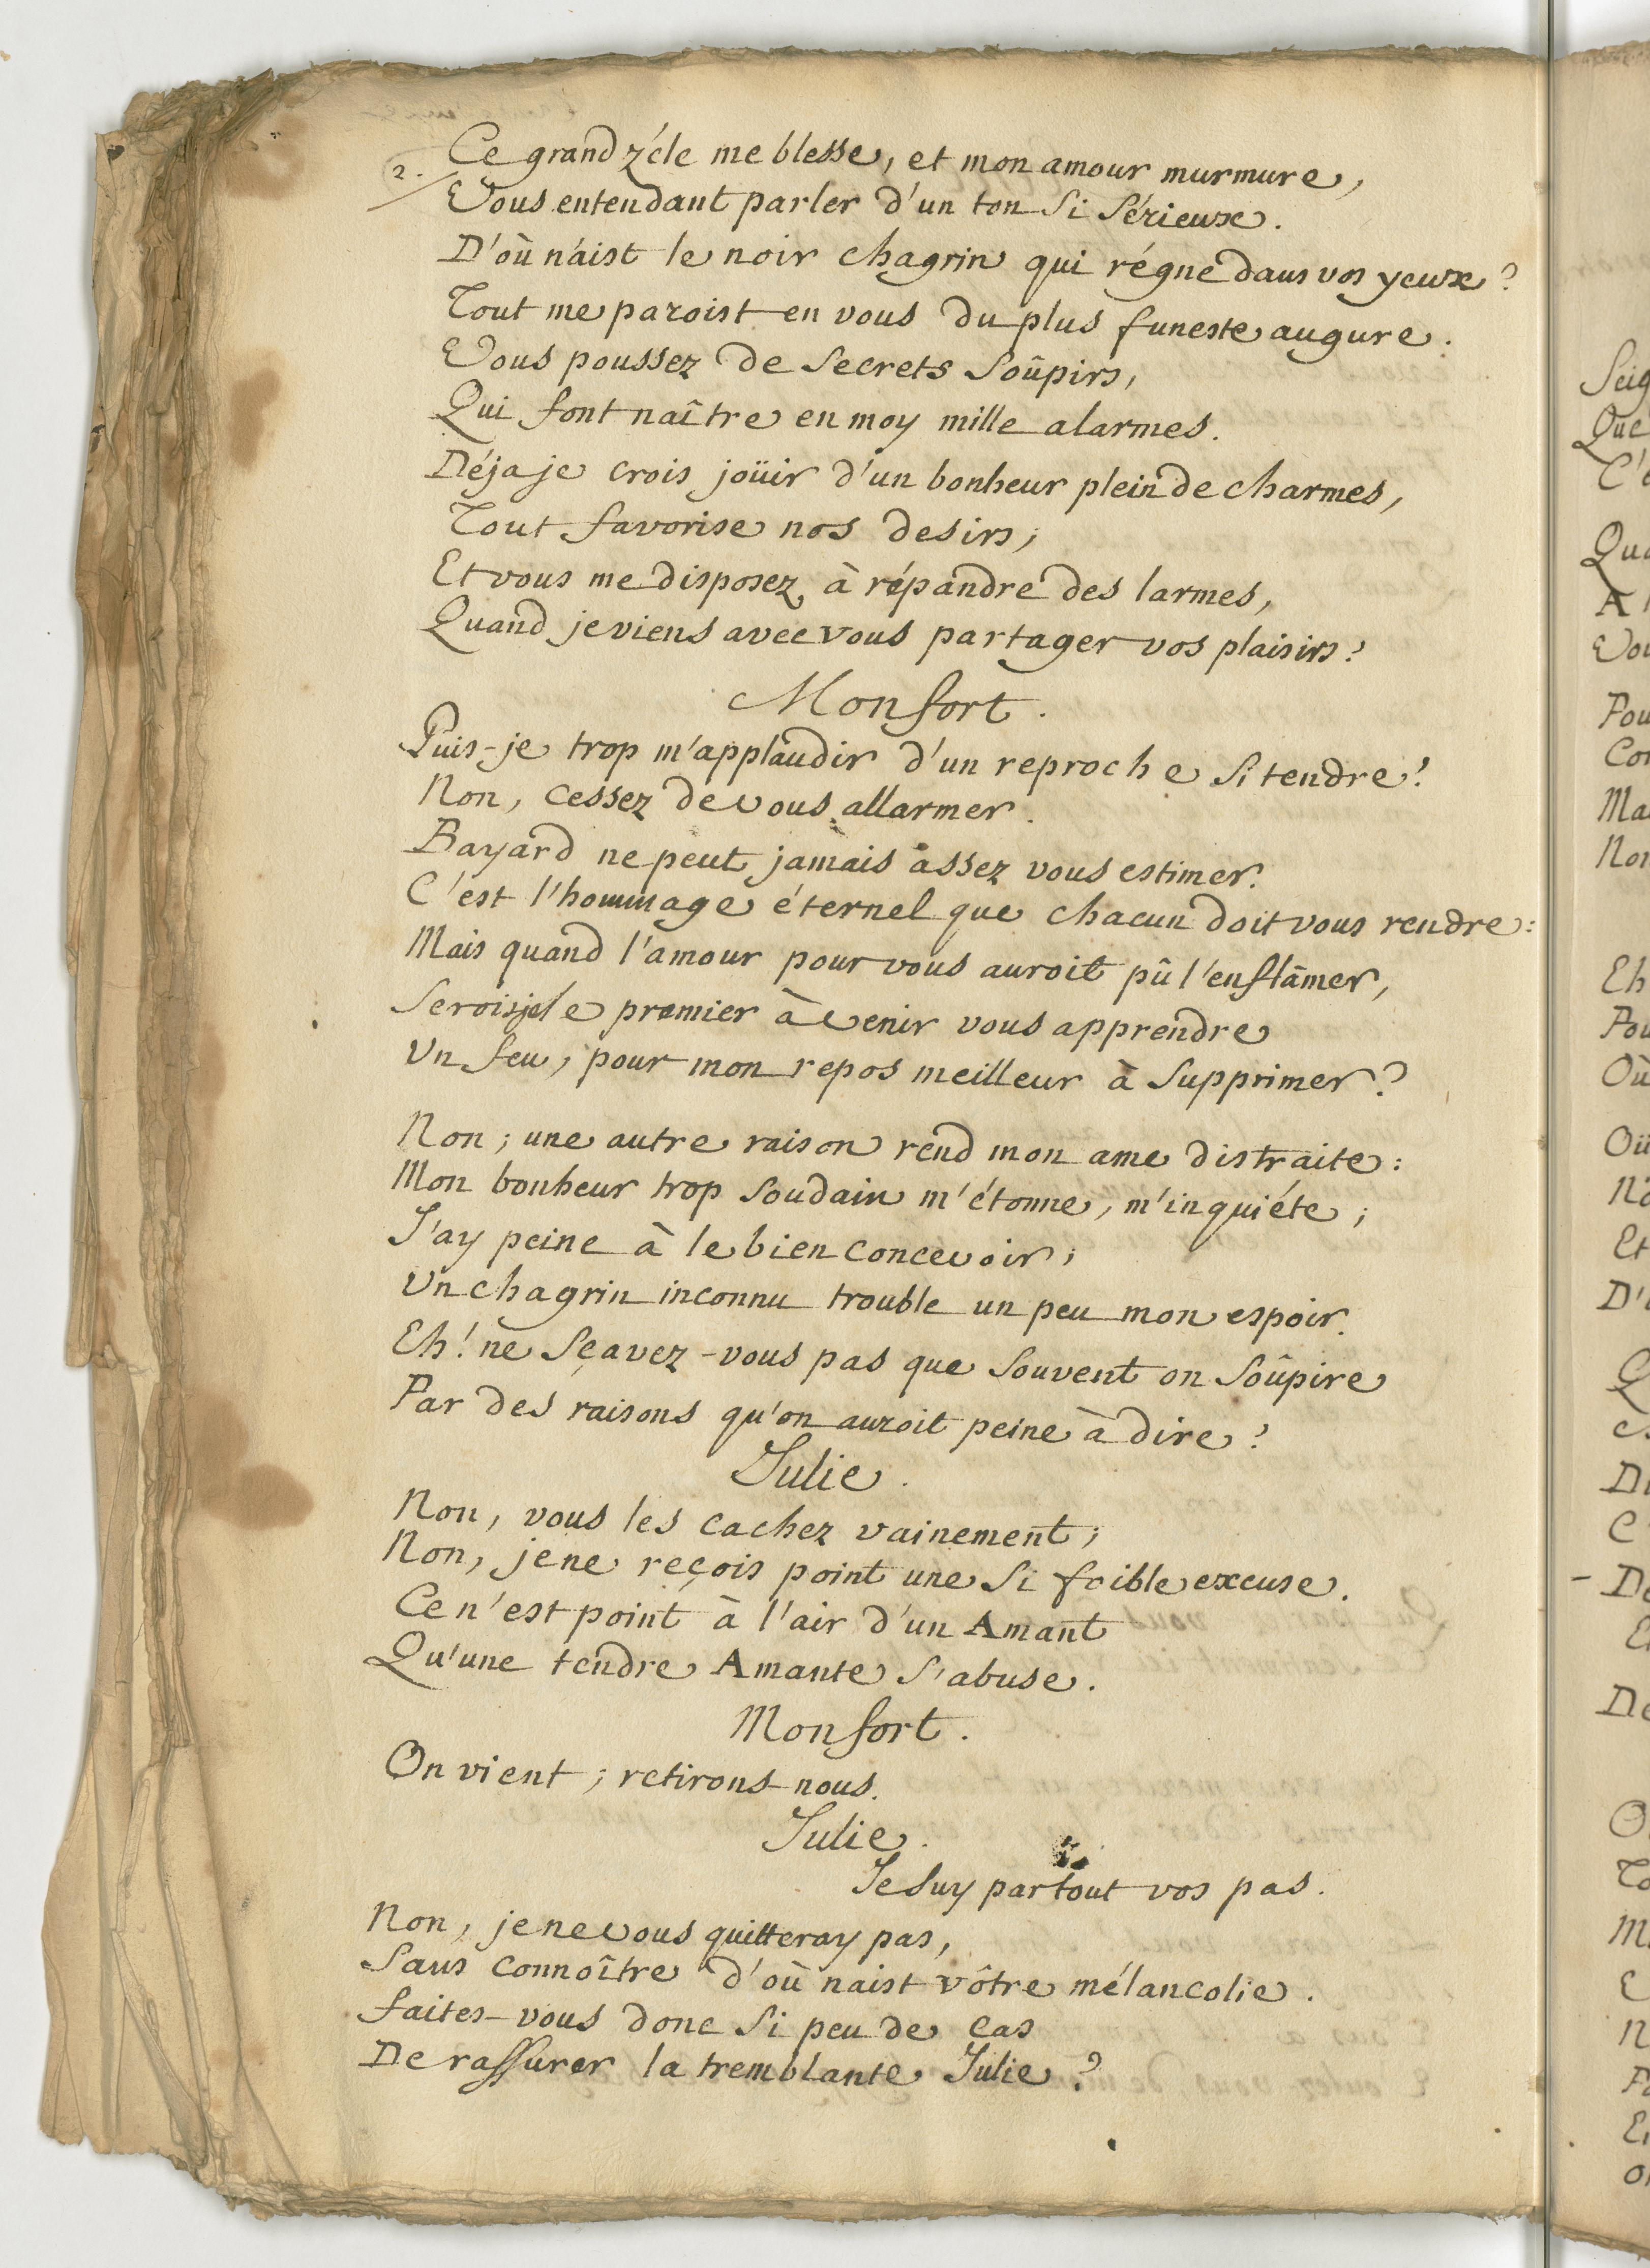 2.
Ce grand zéle me blesse, et mon amour murmure,
Vous entendant parler d'un ton si sérieux.
D'où náist le noir chagrin qui régne dans vos yeux?
Tout me paroist en vous du plus funeste augure.
Vous poussez de secrets soûpirs,
Qui font naître en moy mille alarmes.
Déja je crois joüir d'un bonheur plein de charmes,
Tout favorise nos desirs;
Et vous me disposez à répandre des larmes,
Quand je viens avec vous partager vos plaisirs?
Monfort.
Puis-je trop m'applaudir d'un reproche si tendre?
Non, cessez de vous allarmer.
Bayard ne peut jamais assez vous estimer.
C'est l'hommage éternel que chacun doit vous rendre:
Mais quand l'amour pour vous auroit pû l'enflâmer,
Serois je le premier à venir vous apprendre
Un feu, pour mon repos meilleur à supprimer?
Non; une autre raison rend mon ame distraite:
Mon bonheur trop soudain m'étonne, m'inquiéte;
J'ay peine à le bien concevoir;
Un chagrin inconnu trouble un peu mon espoir.
Eh! ne sçavez-vous pas que souvent on soûpire
Par des raisons qu'on auroit peine à dire?
Julie.
Non, vous les cachez vainement;
Non, je ne reçois point une si foible excuse.
Ce n'est point à l'air d'un Amant
Qu'une tendre Amante s'abuse.
Monfort.
On vient; retirons nous.
Julie.
Je suy partout vos pas.
Non, je ne vous quitteray pas,
Sans connoître d'où naist vôtre mélancolie.
faites-vous donc si peu de cas
De rassurer la tremblante Julie?